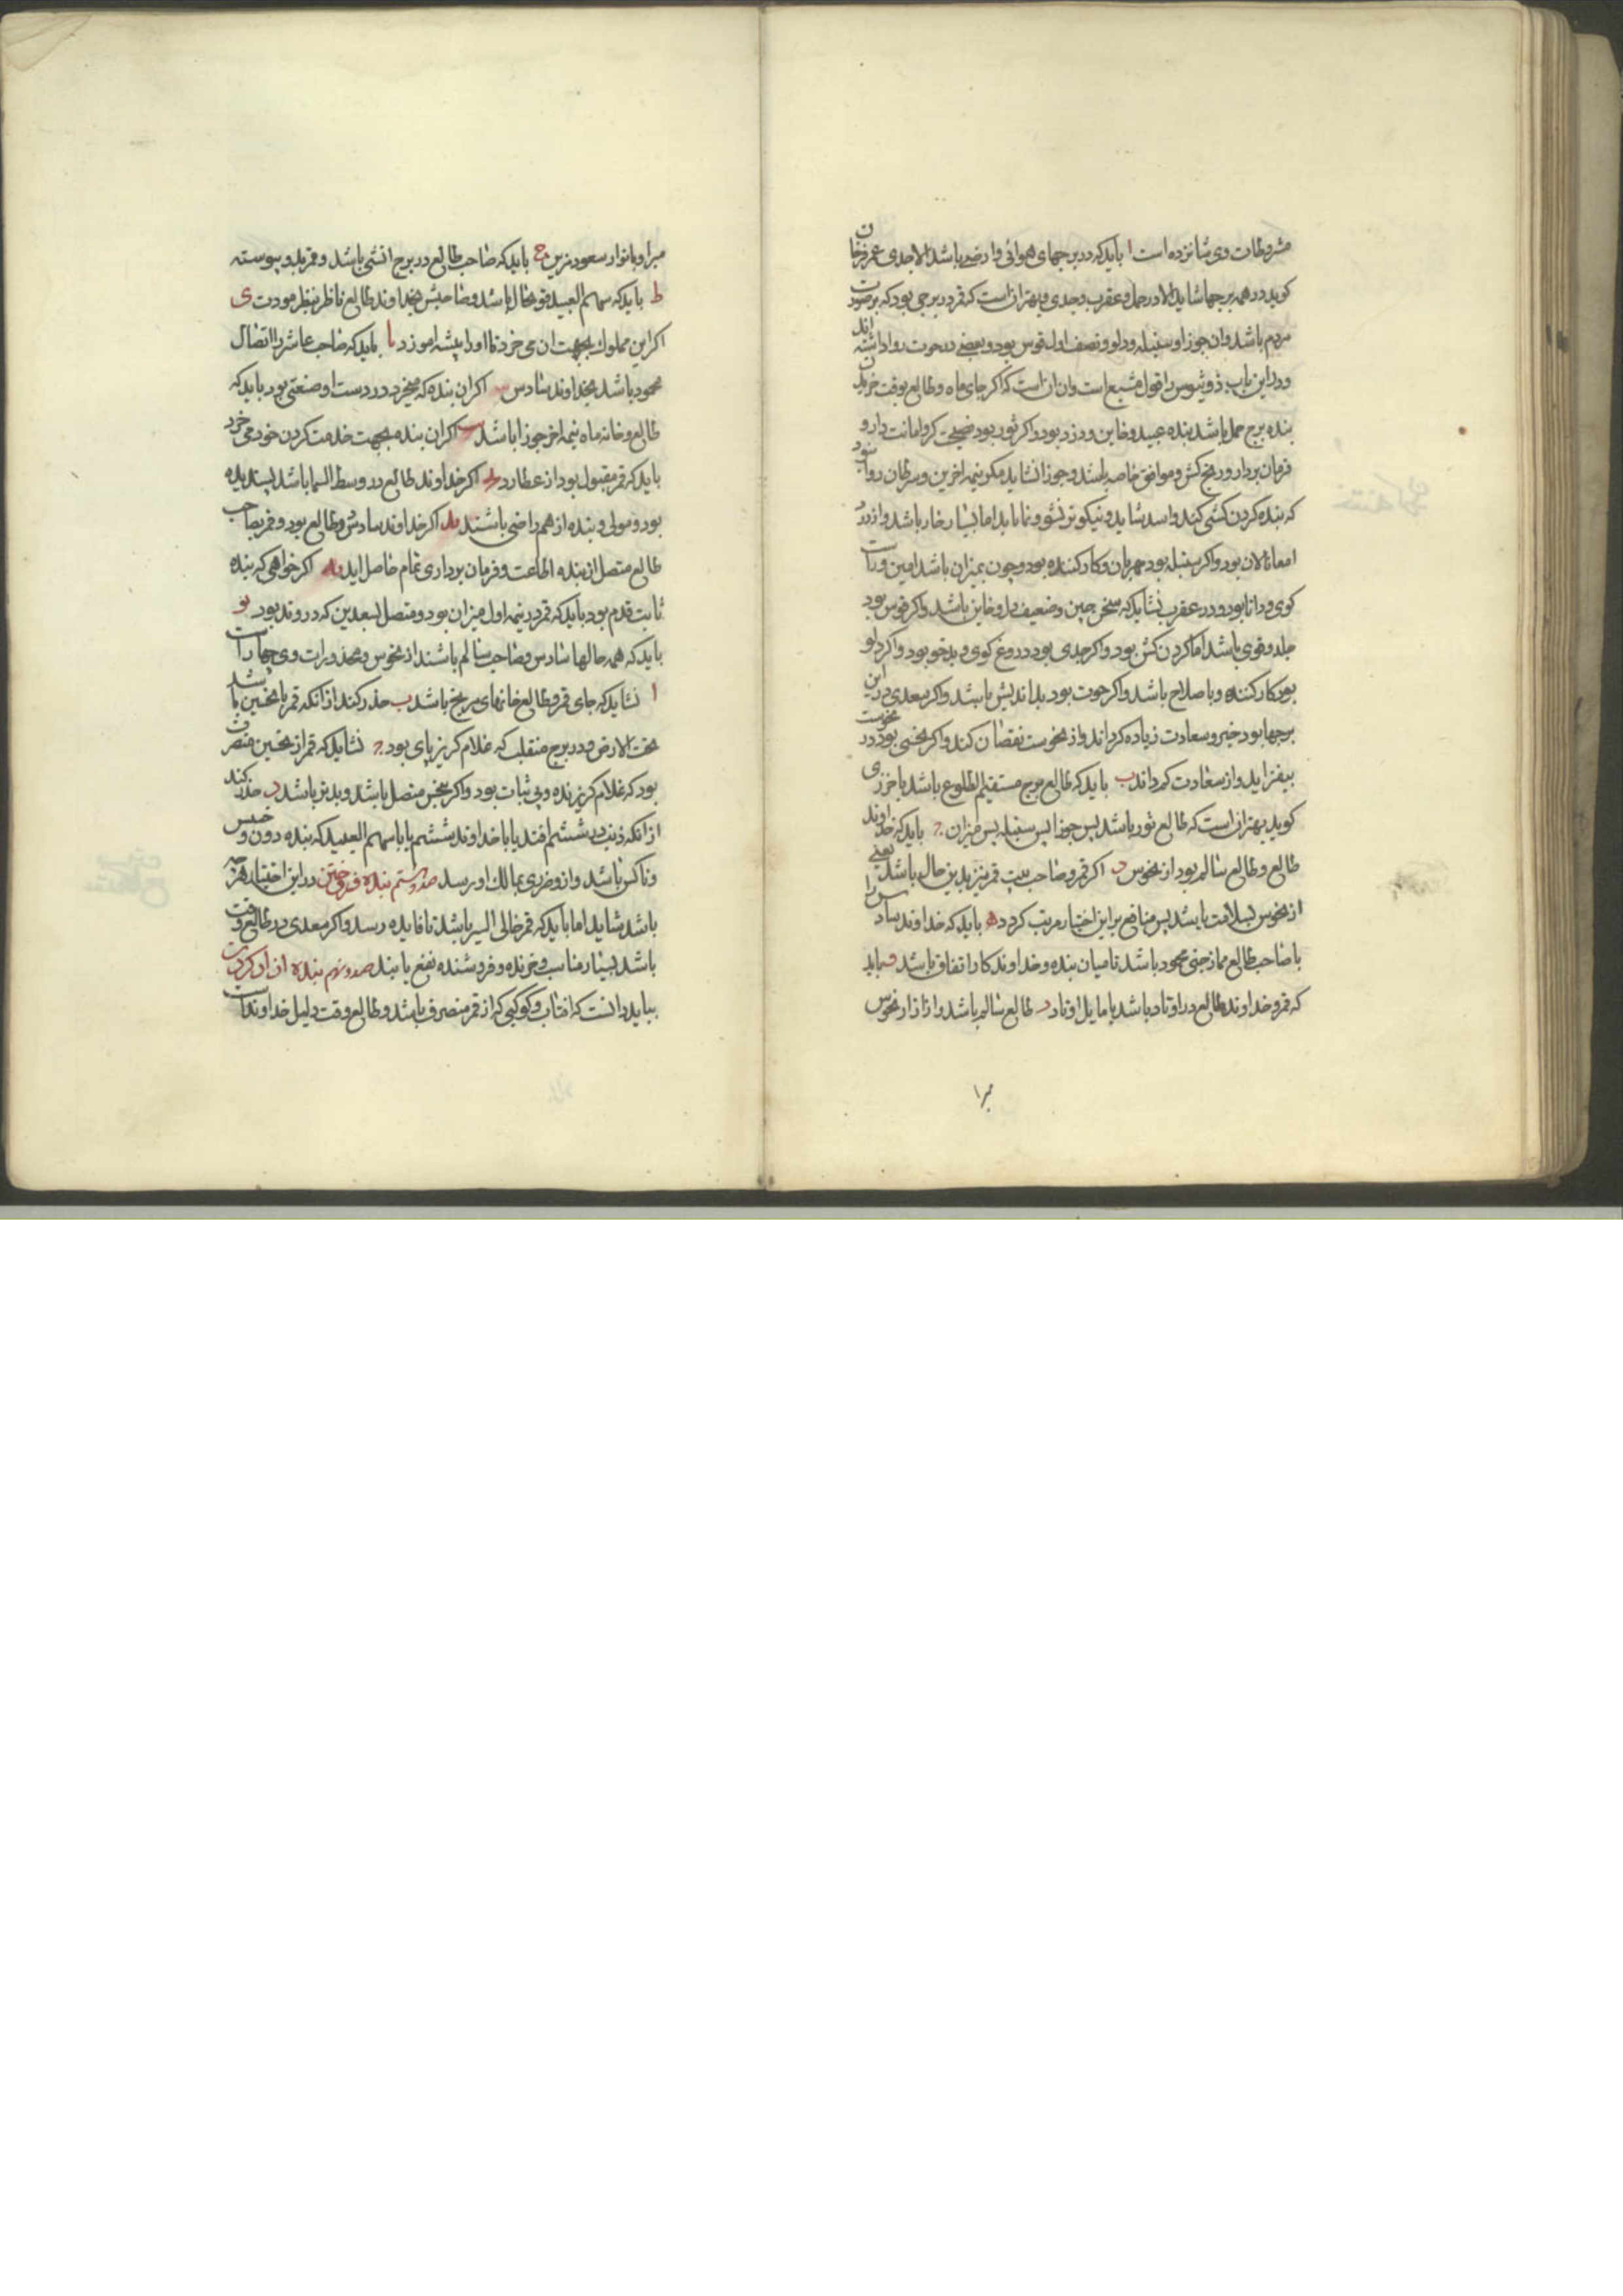 مشروطات وی شانزده است ا باید که در برجهای هوائی و ارضی باشد الا جدی عمر فرخان
کوید در همه برجها شاید الا در حمل و عقرب و جدی و بهتر ان است که قمر در برجی بود که بر صورت
مردم باشد و ان جوزا و سنبله و دلو و نصف اول قوس بود و بعضی در حوت روا داشته اند
و در این باب ذوثیوس را قول مشبع است و ان ان است که اکر جای ماه و طالع بوقت خریدن
بنده برج حمل باشد بنده و خاین و دزد بود و اکر ثور بود امانت دار و
فرمان بردار و رنج کش و موافق خاصه باشد و جوزا نشاید مکر نیمه اخرین و سرطان روا بود
که بنده کردن کشی کند و اسد شاید و نیکوتر و نماید اما بسیار خار باشد و از درد
امعا نالان بود و اکر سنبله بود مهربان و کار کننده بود و چون میزان باشد امین و راست
کوی و دانا بود و در عقرب نشاید که سخن چین و ضعیف دل و خاین باشد و اکر قوس بود
جلد و قوی باشد اما کردن کش بود و اکر جدی بود دروغ کوی و بدخو بود و اکر دلو
بود کار کننده و با صلاح باشد و اکر حوت بود بد اندیش باشد و اکر سعدی در این
برجها بود خیر و سعادت زیاده کرداند و از نحوست نقصان کند و اکر نحسی بود در نحوست
بیفزاید و از سعادت کم کرداند ب باید که طالع برج مستقیم الطلوع باشد
کوید بهتر ان است که طالع ثور باشد پس جوزا پس سنبله پس میزان ج باید که خداوند
طالع و طالع سالم بود از نحوس د اکر قمر و صاحب بیت قمر نیز بدین حال باشد یعنی
از نحوس بسلامت باشد پس منافع بر این اختیار مرتب کردد ه باید که خداوند سادس را
با صاحب طالع ممازجتی محمود باشد تا میان بنده و خداوند کار اتفاق باشد و باید
که قمر و خداوند طالع در اوتاد باشد یا مایل اوتاد ز طالع سالم باشد و از ازار نحوس
مبرا
مبرا و بانوار سعود مزین ح باید که صاحب طالع در برج انثی باشد و قمر بدو پیوسته
ط باید که سهم العبید قوی حال باشد و صاحبش بخداوند طالع ناظر بنظر مودت ی
اکر این مملوک بجهت ان می خرد تا او را پیشه اموزد یا باید که صاحب عاشر را اتصال
محمود باشد بخداوند سادس اکر ان بنده که میخرد در دست او صنعتی بود باید که
طالع و خانه ماه نیمه اخر جوزا باشد اکر ان بنده بجهت خدمت کردن خود می خرد
باید که قمر مقبول بود از عطارد اکر خداوند طالع در وسط السما باشد پسندیده
بود و مولی و بنده از هم راضی باشند ید اکر خداوند سادس در طالع بود و قمر بصاحب
طالع متصل از بنده اطاعت و فرمان برداری تمام حاصل اید یه اکر خواهی که بنده
ثابت قدم بود باید که قمر در نیمه اول میزان بود و متصل بسعدین که در وتد بود یو
باید که همه حالها سادس و صاحب سالم باشند از نحوس و محذورات وی چهار است
ا نشاید که جای قمر و طالع خانهای مریخ باشد ب حذر کند از انکه قمر با نحسین باشد
تحت الارض و در برج منقلب که غلام کریز پای بود ج نشاید که قمر از نحسین منصرف
بود که غلام کریزنده و بی ثبات بود و اکر بنحس متصل باشد و بدتر باشد د حذر کند
از انکه ذنب در ششم افتد یا با خداوند ششم یا با سهم العبید که بنده دون و خسیس
و ناکس باشد و از و ضرری بمالک او رسد صد و بیستم بنده فروختن در این اختیار هر چه
باشد شاید اما باید که قمر خالی السیر باشد تا فایده رسد و اکر سعدی در طالع وقت
باشد بسیار مناسب و خرنده و فروشنده نفع یابند بنده ازاد کردن
بباید دانست که افتاب و کوکبی که از قمر منصرف باشد و طالع وقت دلیل خداوند است